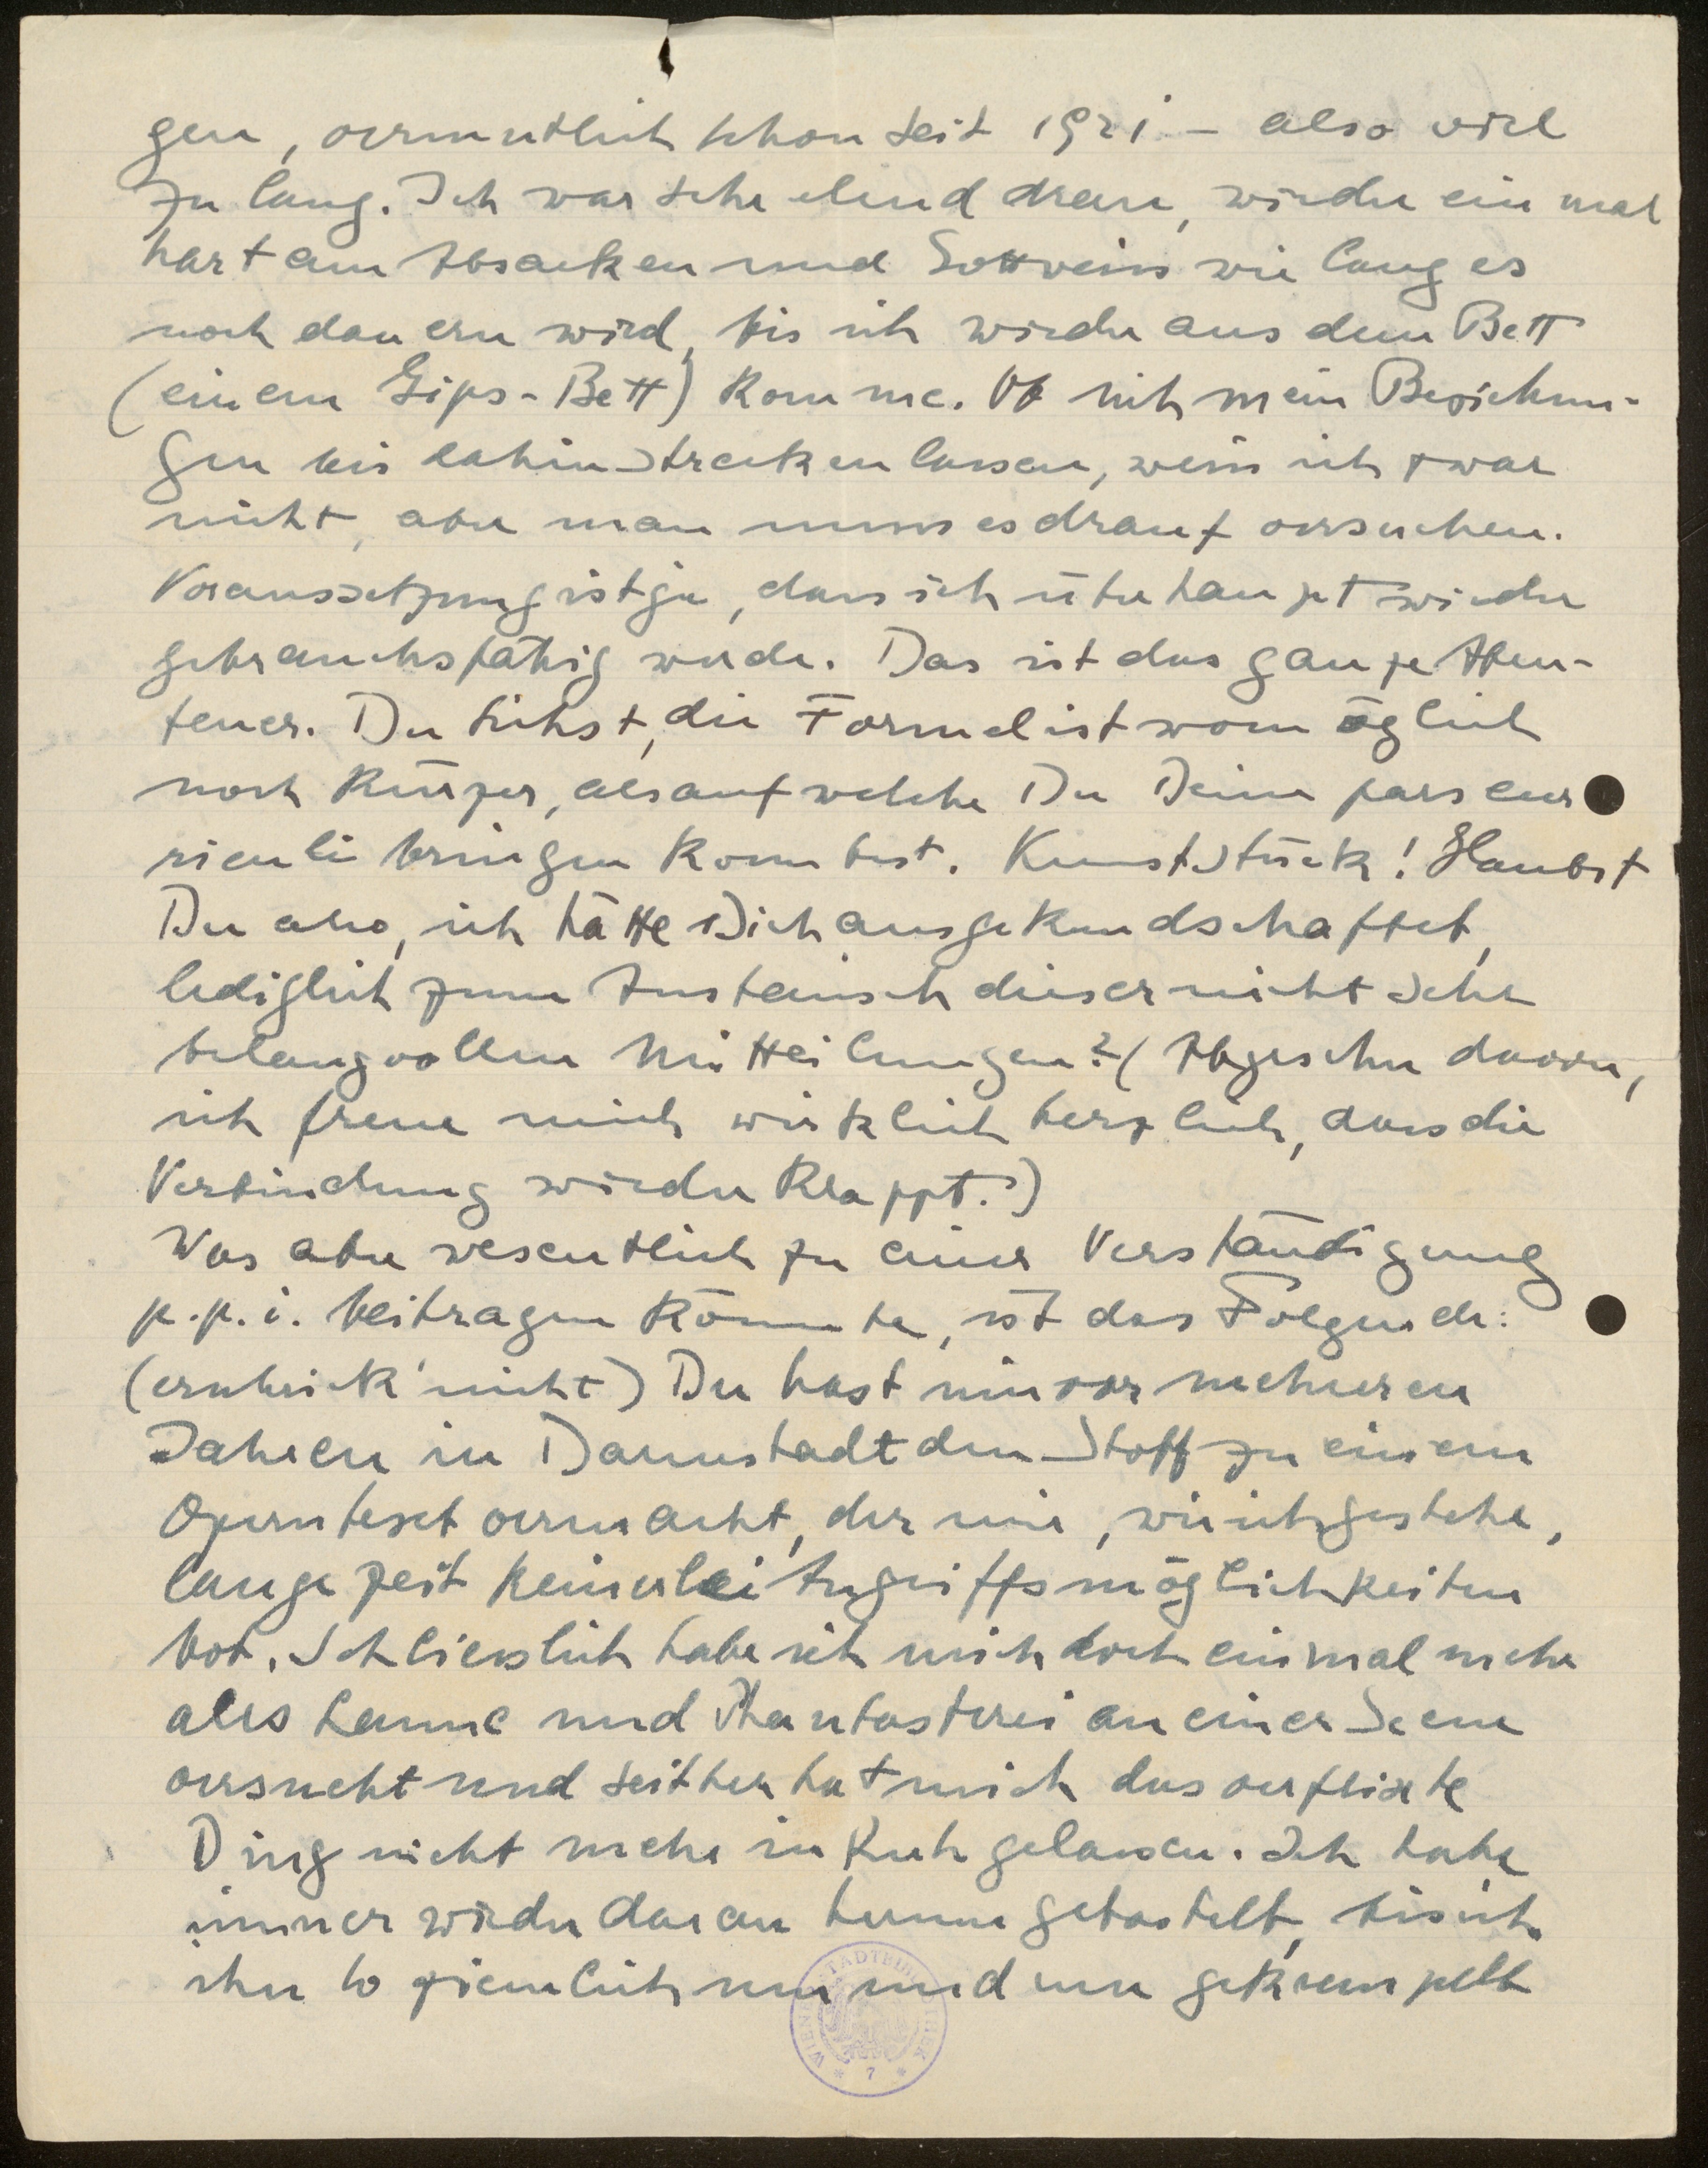 gen, vermutlich schon seit 1921 – also viel
zu lang. Ich war sehr elend dran, wieder ein mal
hart am Absacken und Gottweiss wie lang es
noch dauern wird, bis ich wieder aus dem Bett
(einem Gips-Bett) komme. Ob sich mein Beziehun-
gen bis dahin strecken lassen, weiss ich zwar
nicht, aber man muss es drauf versuchen.
Voraussetzung ist ja, dass ich überhaupt wieder
gebrauchsfähig werde. Das ist das ganze Aben-
teuer. Du siehst, die Formel ist womöglich
noch kürzer, als auf welche Du Deine pars cur
riculi bringen konntest. Kunststück! Glaubst
Du also, ich hätte Dich ausgekundschaftet,
lediglich zum Austausch dieser nicht sehr
belangvollen Mitteilungen? (Abgesehn davon,
ich freue mich wirklich herzlich, dass die
Verbindung wieder klappt.)
Was aber wesentlich zu einer Verständigung
p.p.i. beitragen könnte, ist das Folgende:
(erschrick' nicht) Du hast mir vor mehreren
Jahren in Darmstadt den Stoff zu einem
Operntext vermacht, der mir, wie ich gestehe,
lange Zeit keinerlei Angriffsmöglichkeiten
bot. Schliesslich habe ich mich doch einmal mehr
aus Laune und Phantasterei an einer Scene
versucht und seither hat mich das verflixte
Ding nicht mehr in Ruh gelassen. Ich habe
immer wieder daran herumgebastelt, bis ich
ihn so ziemlich um und um gekrempelt
WIENER STADTBIBLIOTHEK
* 7 *